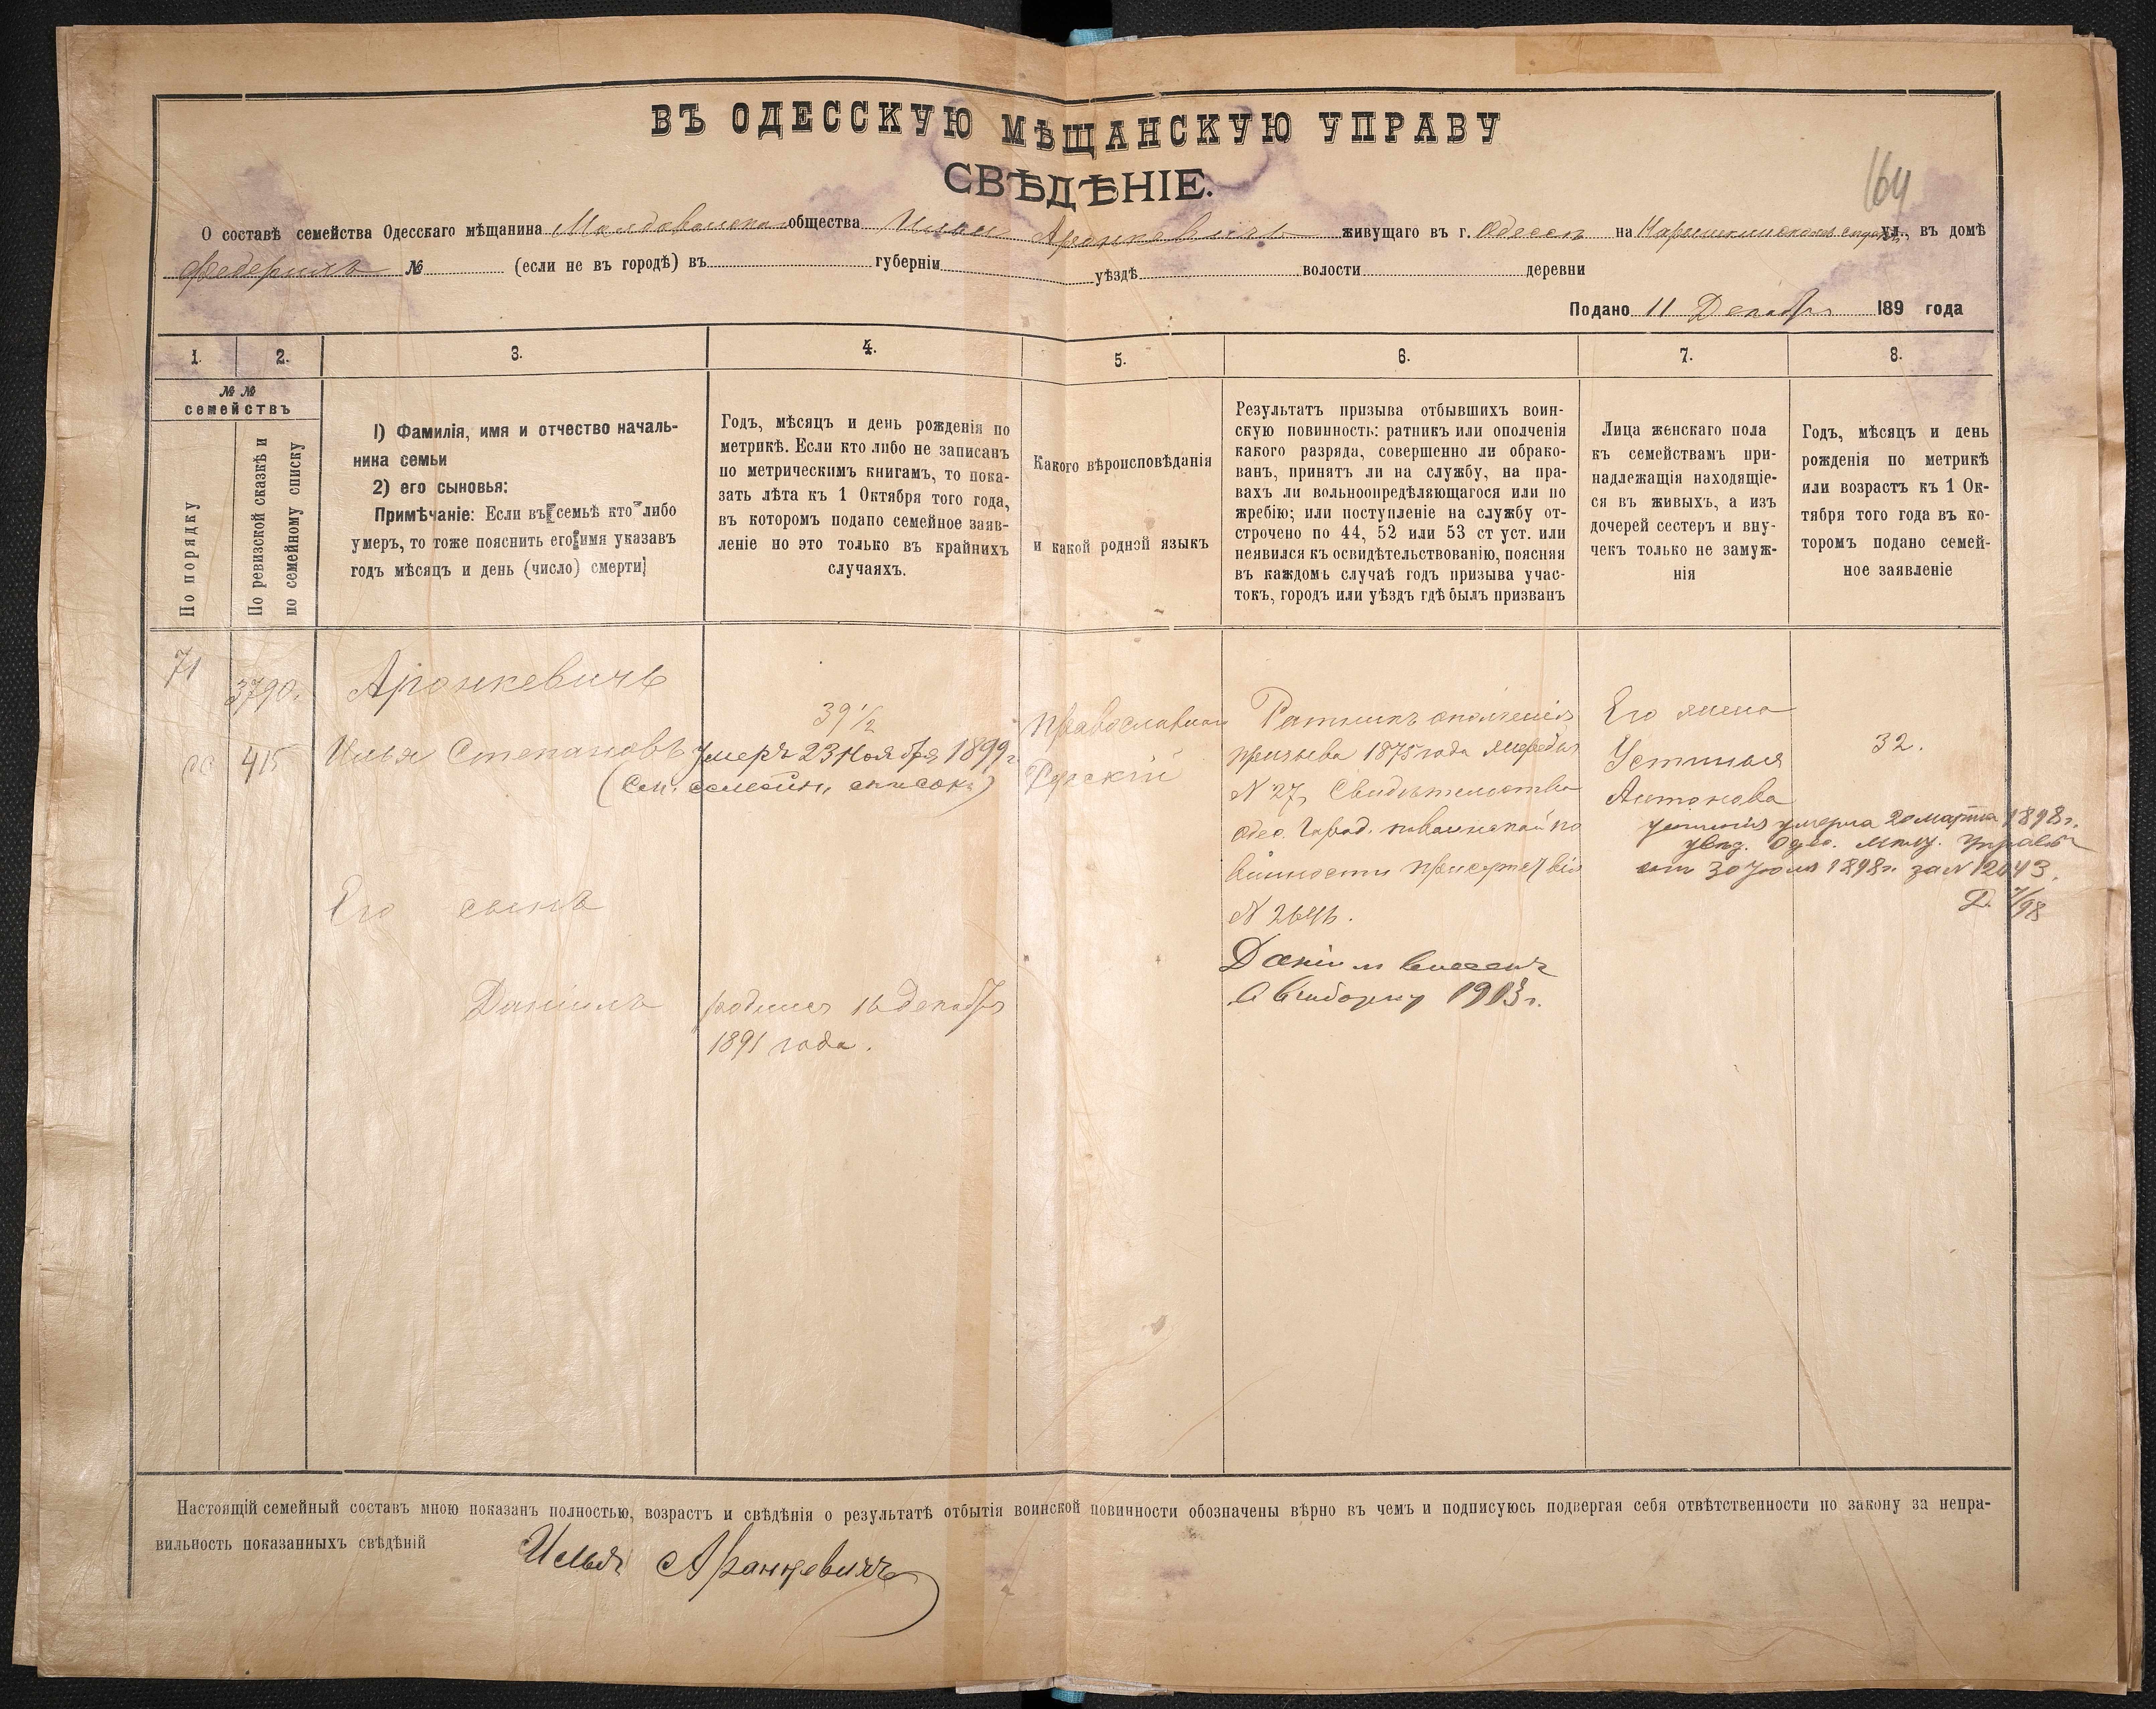 ВЪ ОДЕССКУЮ МѢЩАНСКУЮ УПРАВУ
СВѢДѢНІЕ.
164
О составѣ семейства Одесскаго мѣщанина Молдованскаго общества Ильи Аронкевичъ живущаго въ г. Одессѣ на ул., въ домѣ
№ (если не въ городѣ) въ губерніи уѣздѣ волости деревни
Подано 11 Декабря 189 года
1. 2. 3. 4. 5. 6. 7. 8.
№ №
семействъ
По порядку
По ревизской сказкѣ и
по семейному списку
1) Фамилія, имя и отчество началь-
ника семьи
2) его сыновья:
Примѣчаніе: Если въ семьѣ кто либо
умеръ, то тоже пояснить его имя указавъ
годъ мѣсяцъ и день (число) смерти
Годъ, мѣсяцъ и день рожденія по
метрикѣ. Если кто либо не записанъ
по метрическимъ книгамъ, то пока-
зать лѣта къ 1 Октября того года,
въ которомъ подано семейное заяв-
леніе но это только въ крайнихъ
случаяхъ.
Какого вѣроисповѣданія
и какой родной языкъ
Результатъ призыва отбывшихъ воин-
скую повинность: ратникъ или ополченія
какого разряда, совершенно ли обрако-
ванъ, принятъ ли на службу, на пра-
вахъ ли вольноопредѣляющагося или по
жребію; или поступленіе на службу от-
строчено по 44, 52 или 53 ст уст. или
неявился къ освидѣтельствованію, поясняя
въ каждомъ случаѣ годъ призыва учас-
токъ, городъ или уѣздъ гдѣ былъ призванъ
Лица женскаго пола
къ семействамъ при-
надлежащія находящіе-
ся въ живыхъ, а изъ
дочерей сестеръ и вну-
чекъ только не замуж-
нія
Годъ, мѣсяцъ и день
рожденія по метрикѣ
или возрастъ къ 1 Ок-
тября того года въ ко-
торомъ подано семей-
ное заявленіе
71
3790.
415
Аронкевичъ
Илья Степановъ
39 1/2
умеръ 23 Ноября 1899 г
(См. семейн. списокъ)
Православнаго
Русскій
Ратникъ ополченія
призыва 1875 года жеребій
N 27, Свидѣтельство
Одес. Город. по воинской по
винности присутствія
N 2646.
Даніил внесенъ
в выборку 1913 г.
Его жена
Устинья
Антонова
32.
умерла 20 марта 1898 г.
увѣд. Одес. Мѣщ. Управы
от 30 Июля 1898 г. за N 12043.
Его сынъ
Даніилъ
родился 16 декабря
1891 года.
Настоящій семейный составъ мною показанъ полностью, возрастъ и свѣдѣнія о результатѣ отбытія воинской повинности обозначены вѣрно въ чемъ и подписуюсь подвергая себя отвѣтственности по закону за непра-
вильность показанныхъ свѣдѣній
Илья Аронкевичъ